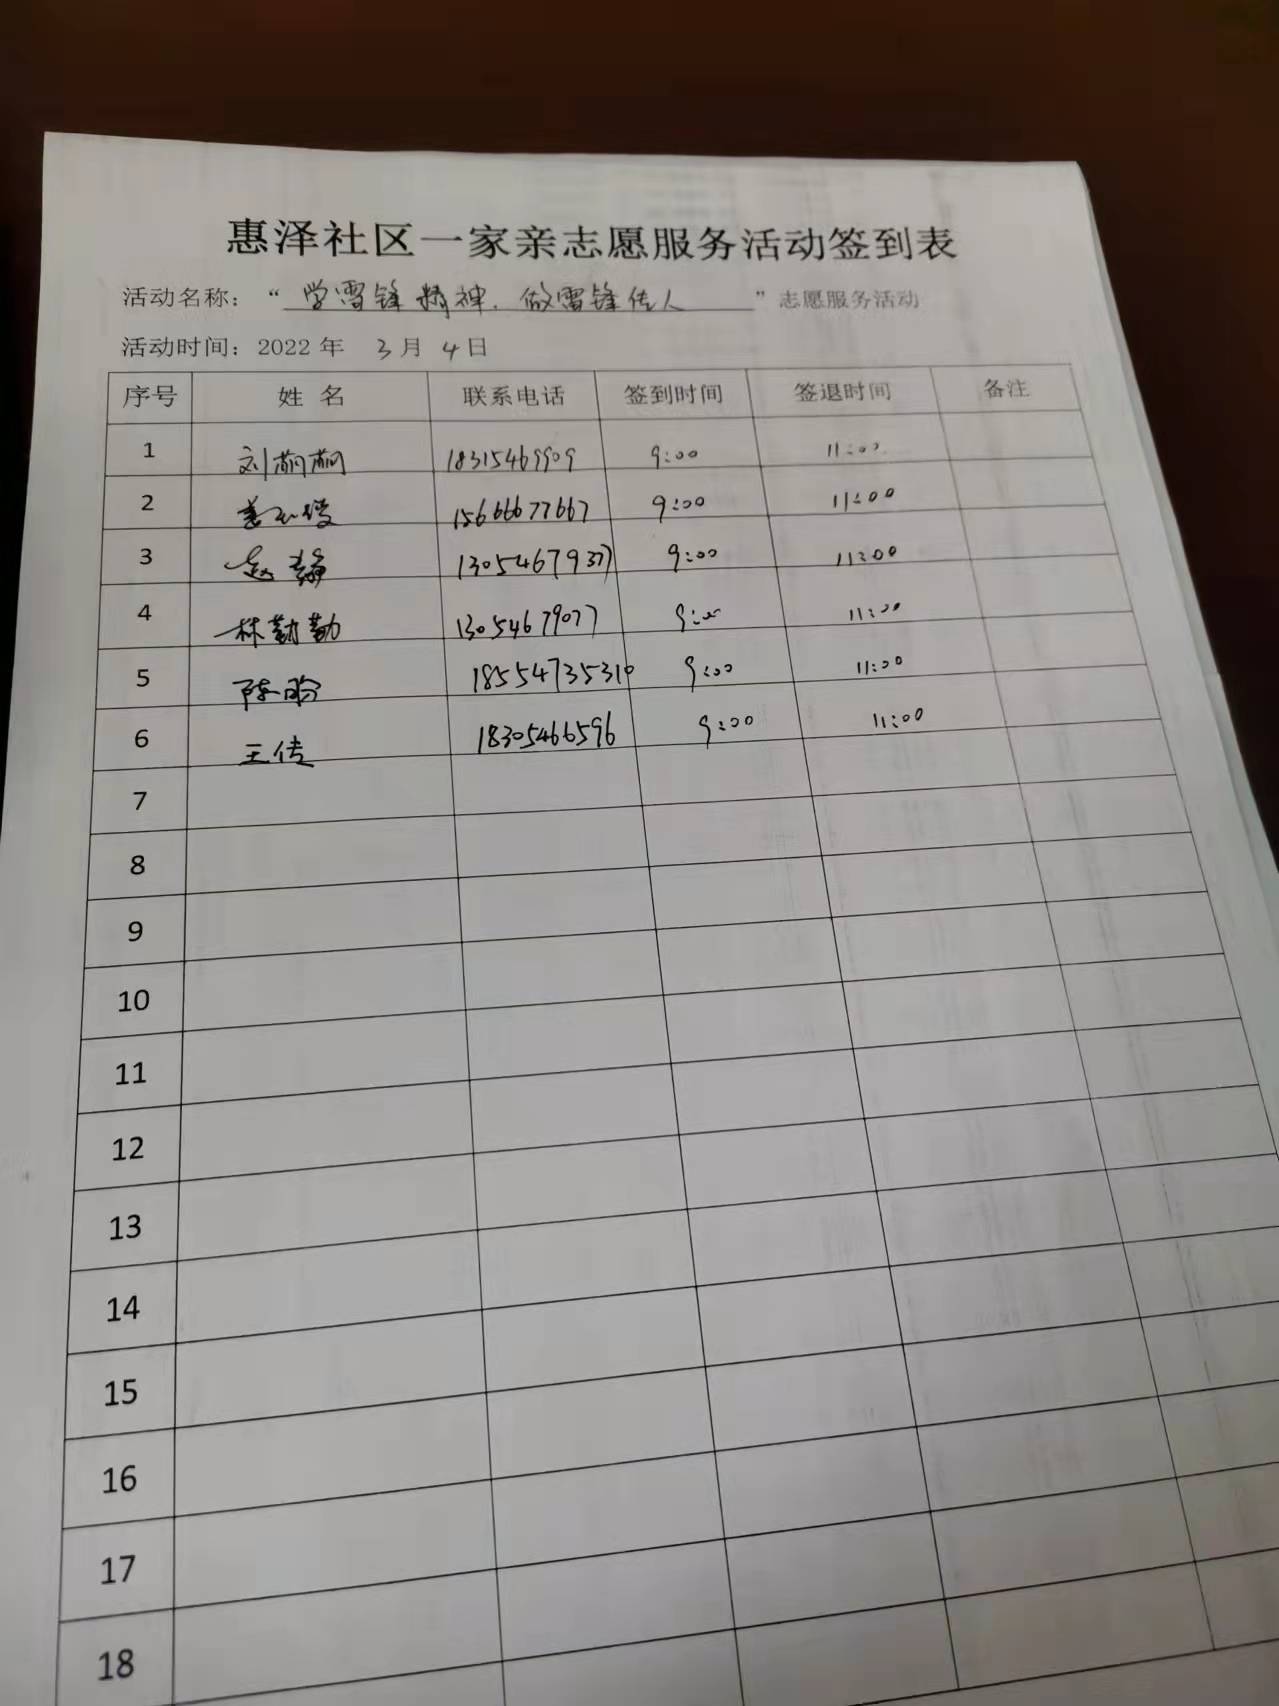 惠泽社区一家亲志愿服务活动签到表
活动名称：“学雷锋精神，做雷锋传人”志愿服务活动
活动时间：2022年 3月 4日
序号 姓 名 联系电话 签到时间 签退时间 备注
1 刘 18315469909 9:00 11:00
2 15666677667 9:00 11:00
3 赵静 13054679377 9:00 11:00
4 林勤勤 13054679077 9:00 11:00
5 陈盼 18554735310 9:00 11:00
6 王传 18305466596 9:00 11:00
7
8
9
10
11
12
13
14
15
16
17
18